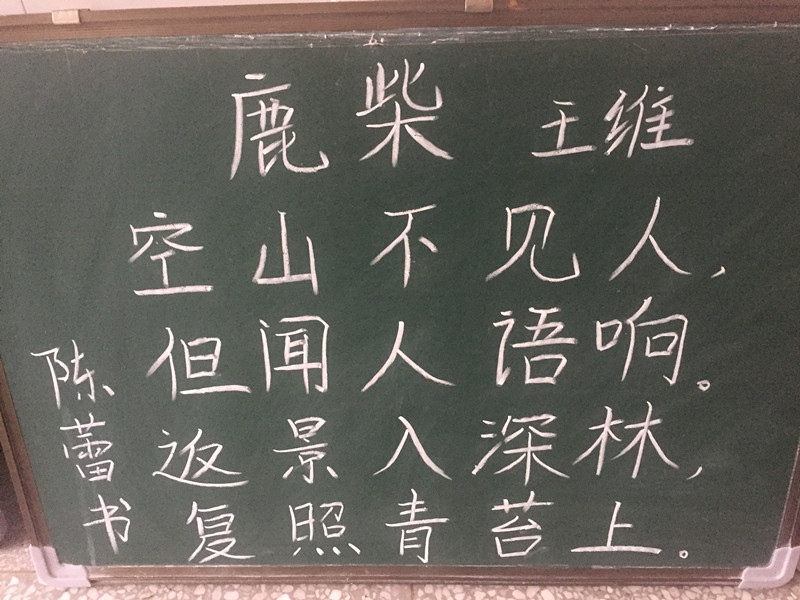 鹿柴 王维
空山不见人，
但闻人语响。
返景入深林，
复照青苔上。
陈蕾书